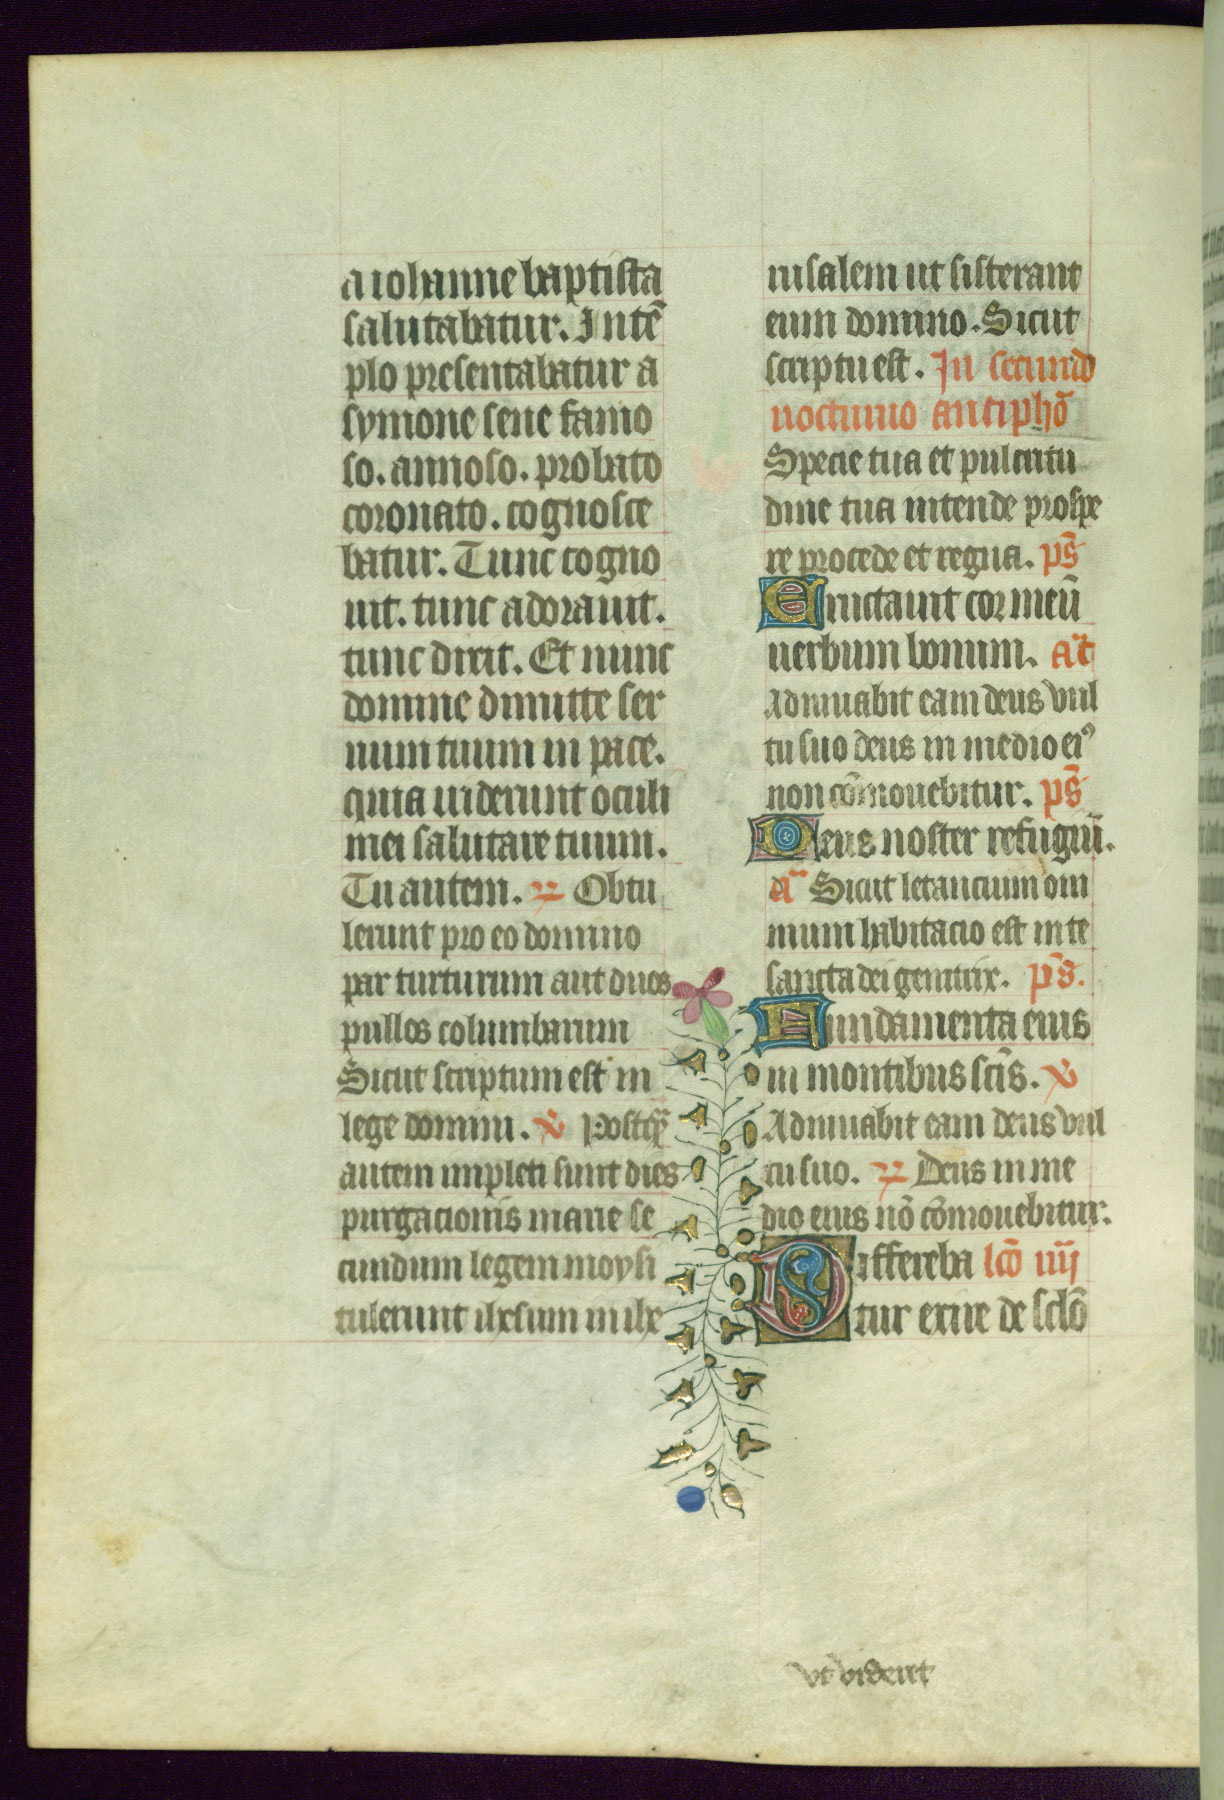 a iohanne baptista
salutabatur. In tē
plo presentabatur a
symone sene famo
so. annoso. probato
coronato. cognosce
batur. Tunc cogno
uit. tunc adorauit.
tunc dixit. Et nunc
domine dimitte ser
uum tuum in pace.
quia uiderunt oculi
mei salutare tuum.
Tu autem. ꝶ Obtu
lerunt pro eo domino
par turturum aut duos
pullos columbarum
Sicut scriptum est in
lege domini. ℣ Postqꝫ
autem impleti sunt dies
purgacionis marie se
cundum legem moysi
tulerunt ihesum in ihe
rusalem ut sisterant
eum domino. Sicut
scriptu est. In secundo
nocturno antiphō
Specie tua et pulcritu
dine tua intende prospe
re procede et regna. pš
Eructauit cor meū
uerbum bonum. at
Adiuuabit eam deus vul
tu suo deus in medio eiꝰ
non cōmouebitur. pš
Deus noster refugiū.
a Sicut letancium om
nium habitacio est in te
sancta dei genitrix. pš.
Fundamenta eius
in montibus scīs. ℣
Adiuuabit eam deus vul
tu suo. ꝶ Deus in me
dio eius nō cōmouebitur.
Differeba lcō iiij
tur exire de sclō
vt viderit